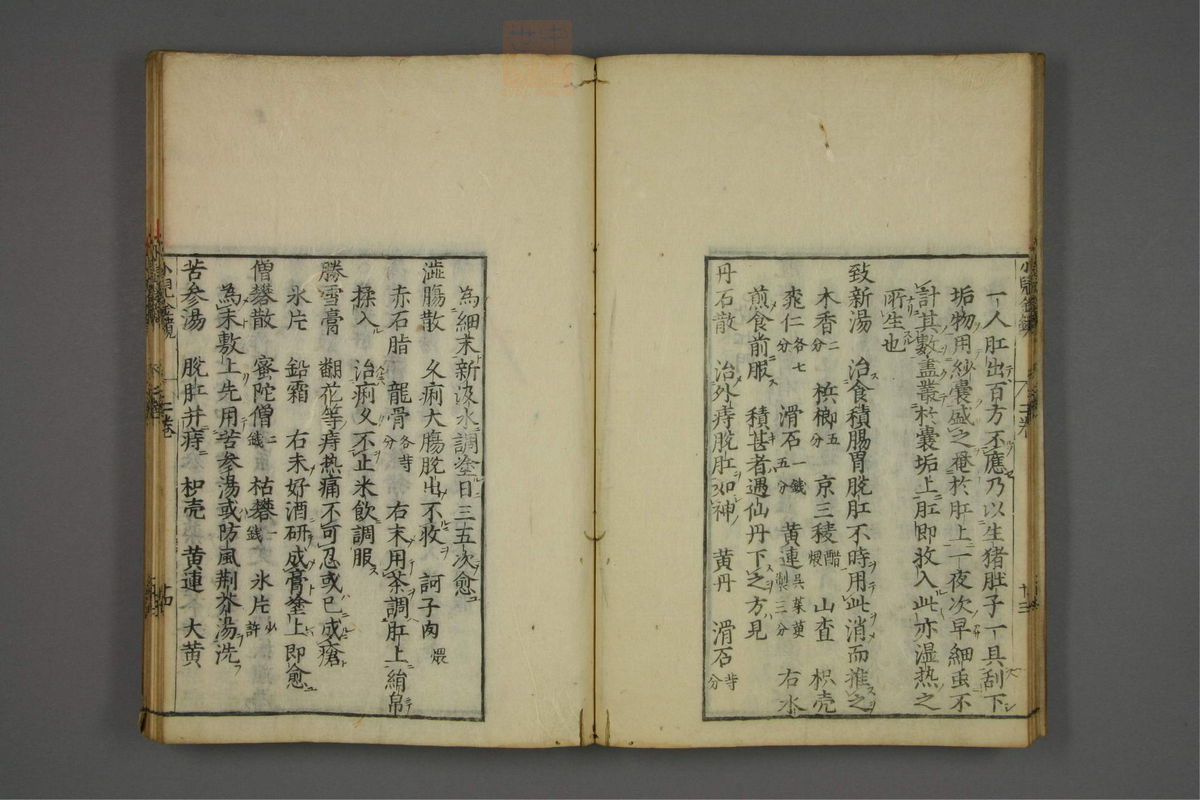 一人肛出百方不應乃以生猪肚子一具刮下
垢物用紗囊盛之庵於肛上一夜次早細虫不
計其數盡叢於囊垢上肛即收入此亦湿热之
所生也
致新湯　治食積腸胃脫肛不時用此消而推之
木香二分　梹榔五分　京三稜醋煨　山査　枳壳
桃仁各七分　滑石一錢五分　黄連呉茱萸製三分　右水
煎食前服　積甚者遇仙丹下之方見
丹石散　治外痔脫肛如神　黄丹　滑石等分
為細末新汲水調塗日三五次愈
澁膓散　久痢大膓脫出不收　訶子肉煨
赤石脂　龍骨各等分　右末用茶調肛上絹帛
揉入　治痢久不止米飲調服
勝雪膏　翻花等痔热痛不可忍或已成瘡
氷片　鉛霜　右末好酒研成膏塗上即愈
僧礬散　蜜陀僧二錢　枯礬一錢　氷片少許
為末敷上先用苦参湯或防風荆芥湯洗
苦参湯　脫肛并痔　枳壳　黄連　大黄